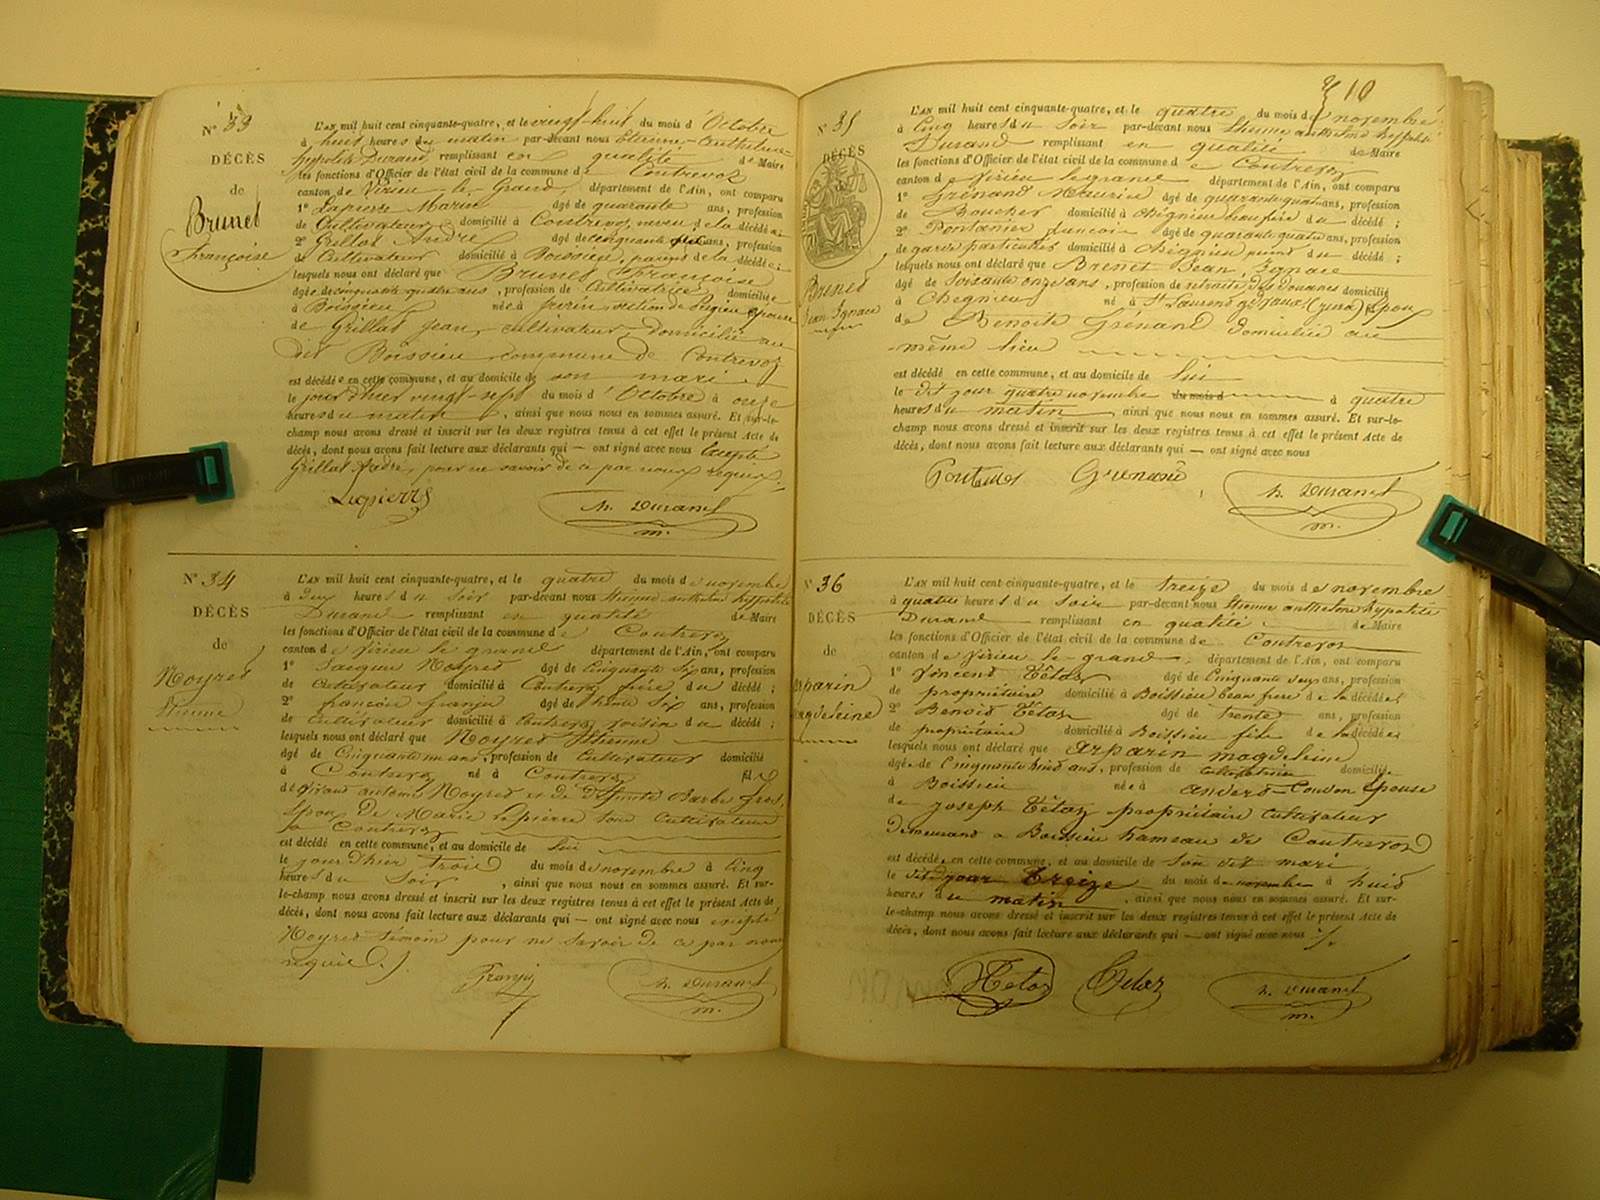 N° 33
DÉCÈS
de
Brunet
Françoise
L'AN mil huit cent cinquante-quatre, et le vingt-huit du mois d'Octobre
à huit heures du matin par-devant nous Etienne-Anthelme-
hyppolite Durand remplissant en qualité de Maire
les fonctions d'Officier de l'état civil de la commune de Contrevoz
canton de Virieu-le-Grand, département de l'Ain, ont comparu
1° Lapierre Marin âgé de quarante ans, profession
de Cultivateur domicilié à Contrevoz, neveu de la décédée;
2° Grillat André âgé de cinquante ans, profession
de Cultivateur domicilié à Boissieu, parent de la décédée;
lesquels nous ont déclaré que Brunet Françoise
âgée de cinquante quatre ans, profession de Cultivatrice domiciliée
à Boissieu née à section de Pugieu épouse
de Grillat Jean, cultivateur domicilié au
dit Boissieu commune de Contrevoz
est décédée en cette commune, et au domicile de son mari
le jour d'hier vingt-sept du mois d'Octobre à onze
heures du matin, ainsi que nous nous en sommes assuré. Et sur-le-
champ nous avons dressé et inscrit sur les deux registres tenus à cet effet le présent Acte de
décès, dont nous avons fait lecture aux déclarants qui — ont signé avec nous excepté
Grillat André, pour ne savoir de ce par nous requis.
Lapierre
h. Durand
m.
N° 34
DÉCÈS
de
Noyret
Etienne
L'AN mil huit cent cinquante-quatre, et le quatre du mois de novembre
à deux heures du soir par-devant nous Etienne anthelme hyppolite
Durand remplissant en qualité de Maire
les fonctions d'Officier de l'état civil de la commune de Contrevoz
canton de Virieu le grand département de l'Ain, ont comparu
1° Jacques Noyret âgé de Cinquante six ans, profession
de Cultivateur domicilié à Contrevoz frère du décédé;
2° françois franjin âgé de trente six ans, profession
de Cultivateur domicilié à Contrevoz voisin du décédé;
lesquels nous ont déclaré que Noyret Etienne
âgé de Cinquante un ans, profession de Cultivateur domicilié
à Contrevoz né à Contrevoz fils
de antoine Noyret et de Défunte Barbe Gros,
Epoux de Marie Lapierre tous Cultivateurs
à Contrevoz
est décédé en cette commune, et au domicile de lui
le jour d'hier trois du mois de novembre à Cinq
heures du Soir, ainsi que nous nous en sommes assuré. Et sur-
le-champ nous avons dressé et inscrit sur les deux registres tenus à cet effet le présent Acte de
décès, dont nous avons fait lecture aux déclarants qui — ont signé avec nous excepté
Noyret témoin pour ne savoir de ce par nous
requis.
h. Durand
m.
10
N° 35
DÉCÈS
Brunet
Jean Ignace
L'AN mil huit cent cinquante-quatre, et le quatre du mois de novembre
à Cinq heures du Soir par-devant nous Etienne anthelme hyppolite
Durand remplissant en qualité de Maire
les fonctions d'Officier de l'état civil de la commune de Contrevoz
canton de Virieu le grand département de l'Ain, ont comparu
1° Grénard Maurice âgé de quarante quatre ans, profession
de Boucher domicilié à Chégnieu beau frère du décédé;
2° Pontanier françois âgé de quarante quatre ans, profession
de garde particulier domicilié à Chégnieu du décédé;
lesquels nous ont déclaré que Brenet Jean, Ignace
âgé de Soixante onze ans, profession de retraité des Douanes domicilié
à Chegnieu né à St Laurent (jura) Epoux
de Benoite Grénard domiciliée au
-même lieu
est décédé en cette commune, et au domicile de lui
le dit jour quatre novembre du mois d à quatre
heures du matin, ainsi que nous nous en sommes assuré. Et sur-le-
champ nous avons dressé et inscrit sur les deux registres tenus à cet effet le présent Acte de
décès, dont nous avons fait lecture aux déclarants qui — ont signé avec nous
Grenard
h. Durand
m.
N° 36
DÉCÈS
de
arparin
magdeleine
L'AN mil huit cent cinquante-quatre, et le treize du mois de novembre
à quatre heures du Soir par-devant nous Etienne anthelme hypolite
Durand remplissant en qualité de Maire
les fonctions d'Officier de l'état civil de la commune de Contrevoz
canton de Virieu le-grand département de l'Ain, ont comparu
1° Vincent Tétaz âgé de Cinquante ans, profession
de propriétaire domicilié à Boissieu beau frère de la décédée;
2° Benoit Tétaz âgé de trente ans, profession
de propriétaire domicilié à Boissieu fils de la décédée
lesquels nous ont déclaré que arparin magdeleine
âgée de Cinquante huit ans, profession de cultivatrice domiciliée
à Boissieu née à andert-Condon Epouse
de Joseph Tétaz propriétaire Cultivateur
Demeurant à Boissieu hameau de Contrevoz
est décédée en cette commune, et au domicile de Son dit mari
le dit jour treize du mois de novembre à huit
heures du matin, ainsi que nous nous en sommes assuré. Et sur-
le-champ nous avons dressé et inscrit sur les deux registres tenus à cet effet le présent Acte de
décès, dont nous avons fait lecture aux déclarants qui — ont signé avec nous
Tetaz Tetaz
h. Durand
m.